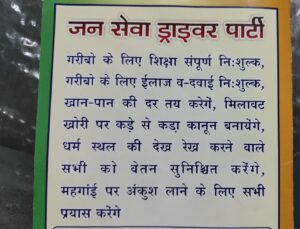 जन सेवा ड्राइवर पार्टी
गरीबो के लिए शिक्षा संपूर्ण नि:शुल्क,
गरीबो के लिए ईलाज व-दवाई नि:शुल्क,
खान-पान की दर तय करेगें, मिलावट
खोरी पर कड़े से कडा़ कानून बनायेंगे,
धर्म स्थल की देख रेख करने वाले
सभी को वेतन सुनिश्चित करेंगे,
महगांई पर अंकुश लाने के लिए सभी
प्रयास करेंगे